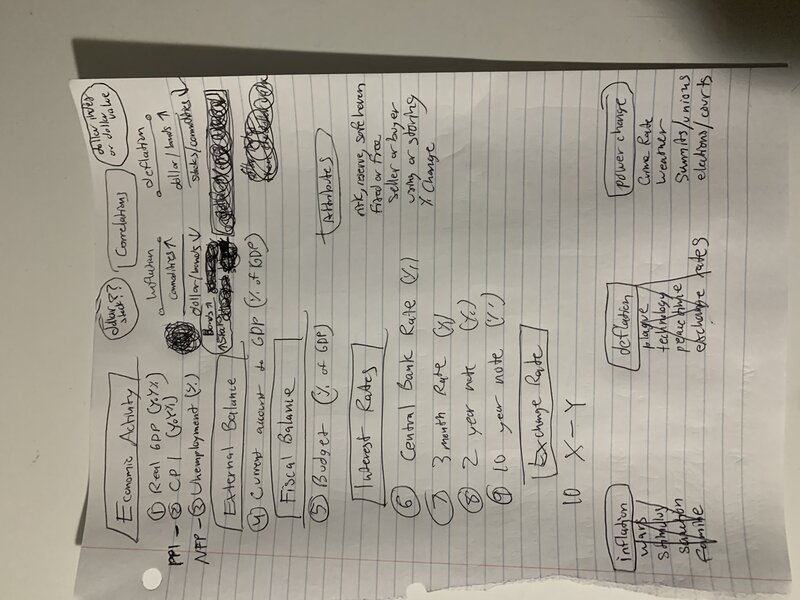 dollar stock??
Correlations
dollar index or dollar value
Economic Activity
① Real GDP (YoY%)
PPI - ② CPI (YoY%)
NFP - ③ Unemployment (%)
Inflation
commodities ↑
dollar/bonds ↓
Bonds ↑
deflation
dollar/bonds ↑
stocks/commodities ↓
External Balance
④ Current account to GDP (% of GDP)
Fiscal Balance
⑤ Budget (% of GDP)
Attributes
risk, reserve, safe haven
fixed or free
seller or buyer
using or storing
% Change
Interest Rates
⑥ Central Bank Rate (%)
⑦ 3 month Rate (%)
⑧ 2 year note (%)
⑨ 10 year note (%)
Exchange Rate
10 X - Y
inflation
wars
stimuluy
sanction
famine
deflation
plague
technology
peacetime
exchange rates
power change
Crime Rate
Weather
Summits/unions
elections/courts